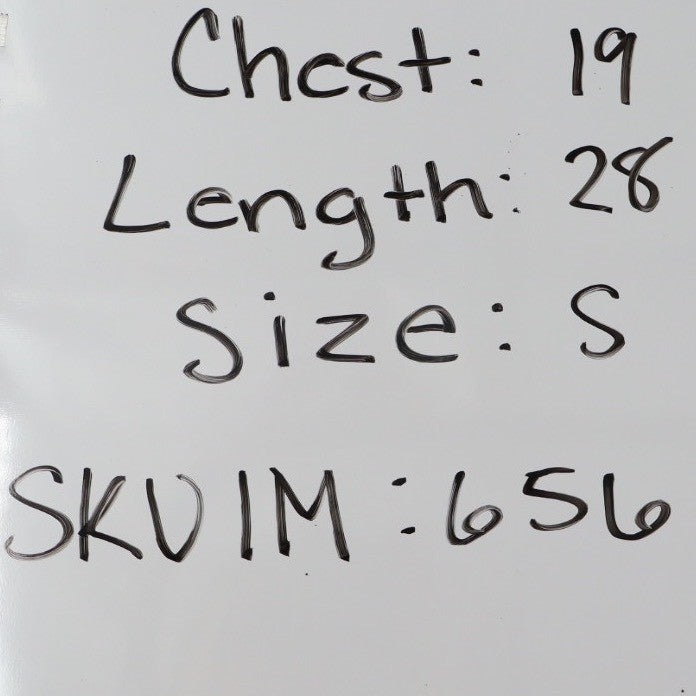 Chest: 19
Length: 28
Size: S
SKUIM: 656